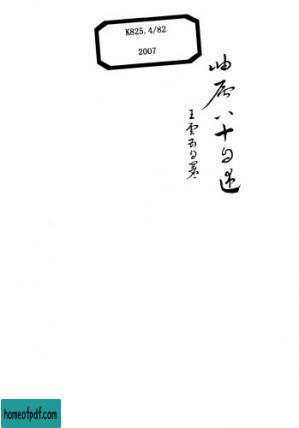 K825.4/82
2007
岫庐八十自述
王雲五自署
homeofpdf.com